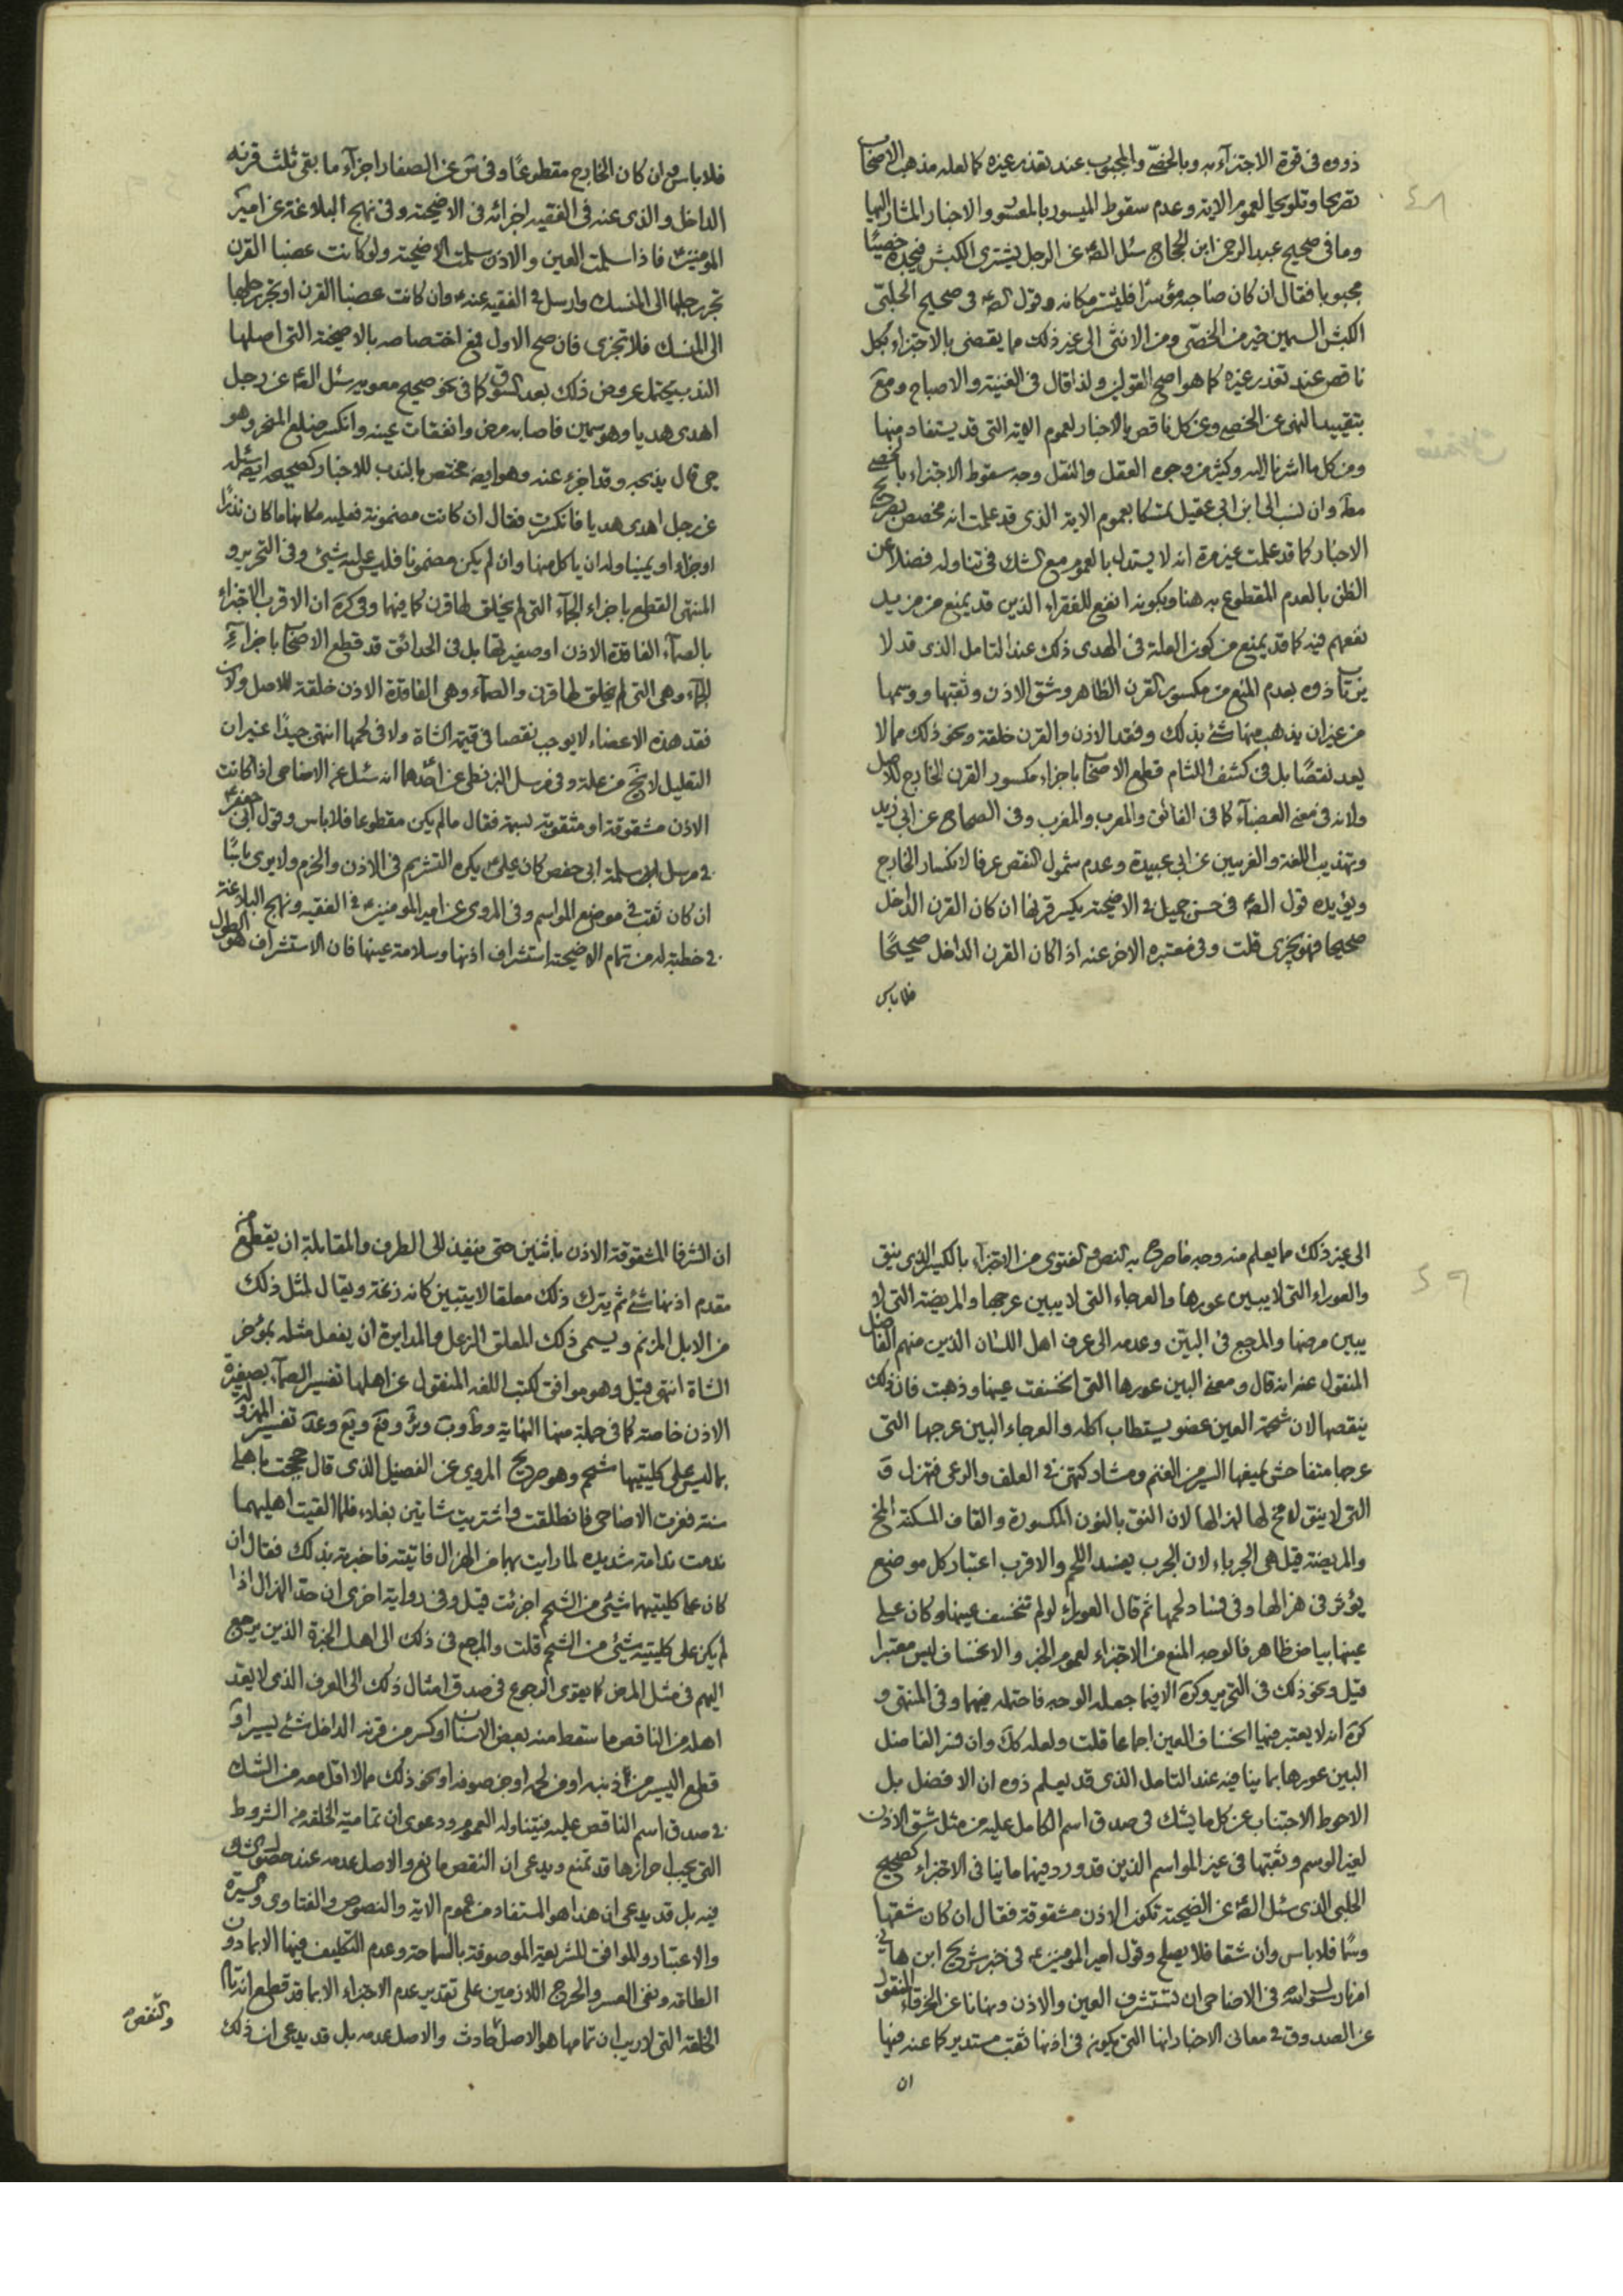 ذووه فى قوة الاجتزاء به وبالخصّى والمجبوب عند تعذر غيره كما لعله مذهب الاصحاب
تصريحا وتلويحا لعموم الاية وعدم سقوط الميسور بالمعسور والاخبار المشار اليها
وما فى صحيح عبد الرحمن ابن الحجاج سئل الصه عن الرجل يشترى الكبش فيجده خصيًا
مجبوبا فقال ان كان صاحبه مؤسرًا فليشتر مكانه وقول الصه فى صحيح الحلبى
الكبش السمين خير من الخصّى ومن الانثى الى غير ذلك مما يقضى بالاجتزاء بكل
ناقص عند تعذر غيره كما هو اصح القولين ولذا قال فى الغنية والاصباح ومع
بتقييد النهى عن الخصى وعن كل ناقص بالاخبار لعموم الاية التى قد يستفاد منها
ومن كل ما اشرنا اليه وكثير من وجوه العقل والنقل وجه سقوط الاجتزاء بالخصى
مطه وان نسب الى ابن ابى عقيل تمسكا بعموم الاية الذى قد علمت انه مخصص بصريح
الاخبار كما قد علمت غير مرة انه لا يستدل بالعموم مع الشك فى تناوله فضلا عن
الظن بالعدم المقطوع به هنا وبكونه انفع للفقراء الذين قد يمنع من مزيد
نفعهم فيه كما قد يمنع من كون العلة فى الهدى ذلك عند التامل الذى قد لا
يرتاب ذوه بعدم المنع من مكسور القرن الظاهر وشق الاذن وثقبها ووسمها
من غير ان يذهب منها شئ بذلك وفقد الاذن والقرن خلقة ونحو ذلك مما لا
يعد نقصًا بل فى كشف اللثام قطع الاصحاب باجزاء مكسور القرن الخارج للاصل
ولانه فى معنى العضباء كما فى الفائق والمعرب والمغرب وفى الصحاح عن ابى زيد
وتهذيب اللغة والغريبين عن ابى عبيدة وعدم شمول النقص عرفا لانكسار الخارج
ويؤيده قول الصه فى حسن جميل فى الاضحية يكسر قرنها ان كان القرن الداخل
صحيحا فهو يجزى قلت وفى معتبره الاخر عنه اذا كان القرن الداخل صحيحًا
فلا باس
فلا باس وان كان الخارج مقطوعًا وفى عن الصفار اجزاء ما بقى ثلث قرنه
الداخل والذى عنه فى الفقيه اجزائه فى الاضحية وفى نهج البلاغة عن امير
المومنين ع فاذا سلمت العين والاذن سلمت الاضحية ولو كانت عضبا القرن
تجر رجلها الى المنسك وارسل فى الفقيه عنه ع وان كانت عضبا القرن او تجر رجلها
الى المنسك فلا تجزى فان صح الاول فمع اختصاصه بالاضحية التى اصلها
الندب يحتمل عروض ذلك بعد السوق كما فى نحو صحيح معوية سئل الصه عن رجل
اهدى هديا وهو سمين فاصابه مرض وانفقات عينه وانكسر فبلغ المنحر وهو
حى قال يذبحه وقد اجزء عنه وهو ايضه مختص بالندب للاخبار كصحيحه ايضه سئله
عن رجل اهدى هديا فانكسرت فقال ان كانت مضمونة فعليه مكانها ما كان نذرًا
او جزاء او يمينا وله ان ياكل منها وان لم يكن مضمونا فليس عليه شيئ وفى التحرير و
المنتهى القطع باجزاء الجماء التى لم يخلق لها قرن كما فيها وفى كره ان الاقرب الاجتزاء
بالصماء الفاقدة الاذن او صغيرتها بل فى الحدائق قد قطع الاصحاب باجزاء
الجماء وهى التى لم يخلق لها قرن والصماء وهى الفاقدة الاذن خلقة للاصل ولان
فقد هذه الاعضاء لا يوجب نقصا فى قيمة الشاة ولا فى لحمها انتهى جيدًا غير ان
التعليل لا يخ من علة وفى مرسل البزنطى عن احدهما انه سئل عن الاضاحى اذا كانت
الاذن مشقوقة او مثقوبة بسمة فقال ما لم يكن مقطوعا فلا باس وقول ابى جعفر ع
فى مرسل سلمة ابى حفص كان على ع يكره التشريم فى الاذن والخرم ولا يرى باسًا
ان كان ثقب فى موضع المواسم وفى المروى عن امير المومنين ع فى الفقيه ونهج البلاغة
فى خطبة له من تمام الاضحية استشراف اذنها وسلامة عينها فان الاستشراف هو الطول
الى غير ذلك مما يعلم منه وجه ما صرح به النص والفتوى من الاجتزاء بالكسير الذى ينق
والعوراء التى لا يبين عورها والعرجاء التى لا يبين عرجها والمريضة التى لا
يبين مرضها والمرجع فى البيّن وعدمه الى عرف اهل اللسان الذين منهم الفاضل
المنقول عنه انه قال ومعنى البين عورها التى انخسفت عينها وذهبت فان ذلك
ينقصها لان شحمة العين عضو يستطاب اكله والعرجاء البين عرجها التى
عرجها متفاحش يمنعها السير من الغنم ومشاركتهن فى العلف والرعى فتهزل و
التى لا ينق لا مخ لها لهزالها لان النق بالنون المكسورة والقاف المسكنة المخ
والمريضة قيل هى الجرباء لان الجرب يفسد اللحم والاقرب اعتبار كل موضع
يؤثر فى هزالها وفى فساد لحمها ثم قال العوراء لو لم تنخسف عينها وكان على
عينها بياض ظاهر فالوجه المنع من الاجتزاء لعموم الخبر والانخساف ليس معتبرا
قيل ونحو ذلك فى التحرير وكره الا فيما جعله الوجه فاحتمله فيهما وفى المنتهى و
كره انه لا يعتبر فيها انخساف العين اجماعا قلت ولعله كك وان فسر الفاضل
البين عورها بما ينافيه عند التامل الذى قد يعلم ذوه ان الافضل بل
الاحوط الاجتناب عن كل ما يشك فى صدق اسم الكامل عليه من مثل شق الاذن
لغير الوسم وثقبها فى غير المواسم الذين قد ورد فيهما ما ينافى الاجتزاء كصحيح
الحلبى الذى سئل الصه عن الضحية تكون الاذن مشقوقة فقال ان كان شقها
وسمًا فلا باس وان شقا فلا يصلح وقول امير المومنين ع فى خبر شريح ابن هانى
امرنا رسول الله فى الاضاحى ان نستشرف العين والاذن ونهانا عن الخرقاء المنقول
عن الصدوق فى معانى الاخبار انها التى يكون فى اذنها ثقب مستدير كما عنه فيها
ان
ان الشرقا المشقوقة الاذن باثنين حتى ينفذ الى الطرف والمقابلة ان يقطع من
مقدم اذنها شئ ثم يترك ذلك معلقا لا يتبين كانه زنمة ويقال لمثل ذلك
من الابل المزنم ويسمى ذلك المعلق الزعل والمدابرة ان يفعل مثله بمؤخر
الشاة انتهى قيل وهو موافق لكتب اللغه المنقول عن اهلها تفسير الصماء بصغيرة
الاذن خاصة كما فى جملة منها النهاية وعد تفسير المهزولة
بما ليس على كليتيها شحم وهو صريح المروى عن الفضيل الذى قال حججت باهلى
سنة فعزت الاضاحى فانطلقت واشتريت شاتين بغلاء فلما القيت اهليهما
ندمت ندامة شديده لما رايت بهما من الهزال فاتيته فاخبرته بذلك فقال ان
كان على كليتيهما شيئ من الشحم اجزئت قيل وفى رواية اخرى ان حد الهزال اذا
لم يكن على كليتيه شيئ من الشحم قلت والمرجع فى ذلك الى اهل الخبرة الذين يرجع
اليهم فى مثل المرض كما يقوى الرجوع فى صدق امثال ذلك الى العرف الذى لا يعد
اهله من الناقص ما سقط منه بعض الاسنان او كسر من قرنه الداخل شئ يسير او
قطع اليسير من ذنبه او من لحمه او من صوفه او نحو ذلك مما لا اقل معه من الشك
فى صدق اسم الناقص عليه فيتناوله العموم ودعوى ان تمامية الخلقه من الشروط
التى يجب احرازها قد تمنع ويدعى ان النقص مانع والاصل عدمه عند حصول الشك
فيه بل قد يدعى ان هذا هو المستفاد من عموم الاية والنصوص والفتاوى والسيرة
والاعتبار والموافق للشريعة الموصوفة بالسماحة وعدم التكليف فيها الا بما دون
الطاقه ونفى العسر والحرج اللازمين على تقدير عدم الاجتزاء الا بما قد قطع انه تام
الخلقه التى لا ريب ان تمامها هو الاصل حادث والاصل عدمه بل قد يدعى ان ذلك
والنقص